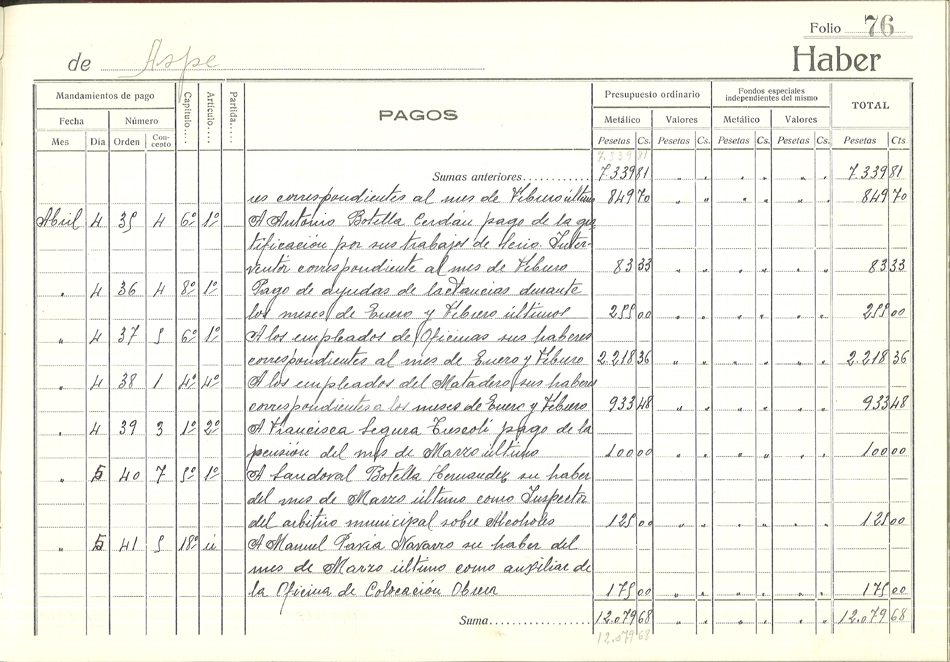 Folio 76
de Aspe Haber
Mandamientos de pago Capítulo.... Artículo.... Partida..... PAGOS Presupuesto ordinario Fondos especiales independientes del mismo TOTAL
Fecha Número Metálico Valores Metálico Valores
Mes Día Orden Concento Pesetas Cs. Pesetas Cs. Pesetas Cs. Pesetas Cs. Pesetas Cts
7.339 81
Sumas anteriores............ 7.339 81 " " " " " " 7.339 81
res correspondientes al mes de Febrero último 849 70 " " " " " " 849 70
Abril 4 35 4 6º 1º A Antonio Botella Cerdán pago de la gra-
tificación por sus trabajos de Secio. Inter-
ventor correspondiente al mes de Febrero 83 33 " " " " " " 83 33
" 4 36 4 8º 1º Pago de ayudas de lactancias durante
los meses de Enero y Febrero últimos 255 00 " " " " " " 255 00
" 4 37 5 6º 1º A los empleados de Oficinas sus haberes
correspondientes al mes de Enero y Febrero 2.218 36 " " " " " " 2.218 36
" 4 38 1 4º 4º A los empleados del Matadero sus haberes
correspondientes a los meses de Enero y Febrero 933 48 " " " " " " 933 48
" 4 39 3 1º 2º A Francisca Segura pago de la
pensión del mes de Marzo último 100 00 " " " " " " 100 00
" 5 40 7 5º 1º A Sandoval Botella Hernandez su haber
del mes de Marzo último como Inspector
del arbitrio municipal sobre Alcoholes 125 00 " " " " " " 125 00
" 5 41 5 18º ú A Manuel Pavia Navarro su haber del
mes de Marzo último como auxiliar de
la Oficina de Colocación Obrera 175 00 " " " " " " 175 00
Suma..................... 12.079 68 " " " " " " 12.079 68
12.079 68